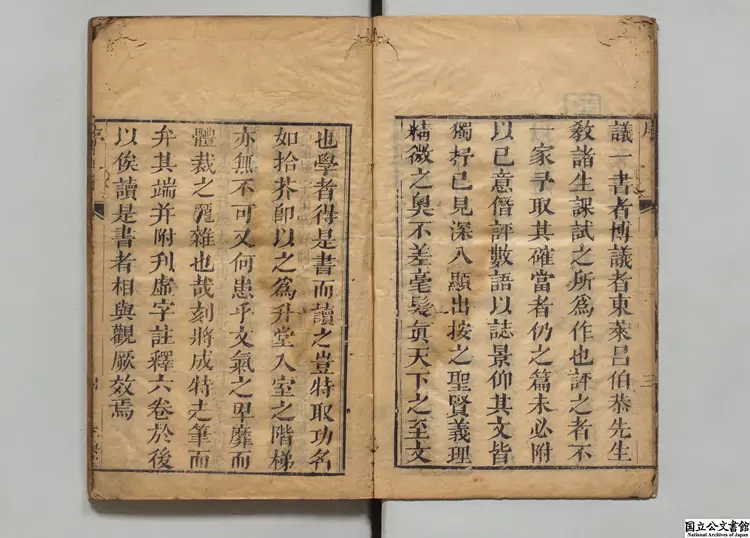 議一書者博議者東萊呂伯恭先生
敎諸生課試之所爲作也評之者不
一家予取其確當者仍之篇末必附
以己意僭評數語以誌景仰其文皆
獨抒己見深入顯出按之聖賢義理
精微之奧不差毫髮眞天下之至文
也學者得是書而讀之豈特取功名
如拾芥卽以之爲升堂入室之階梯
亦無不可又何患乎文氣之卑靡而
體裁之厖雜也哉刻將成特走筆而
弁其端并附刋虛字註釋六卷於後
以俟讀是書者相與觀厥效焉
序
三
国立公文書館
National Archives of Japan